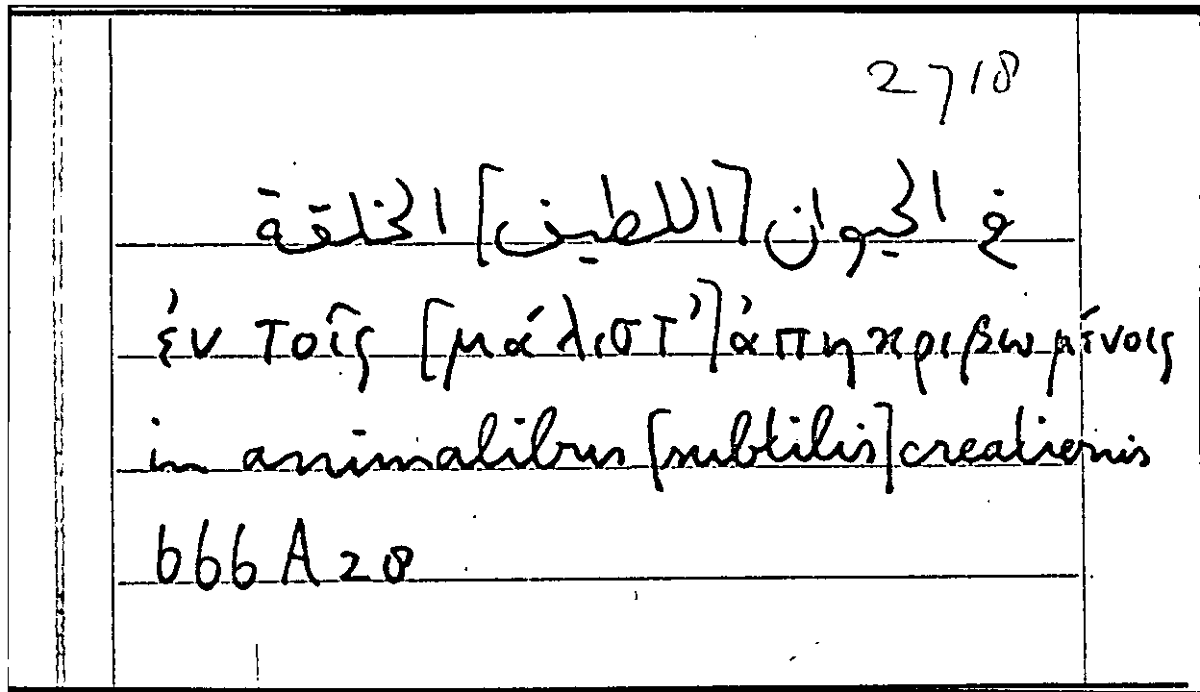 2718
في الحيوان [اللطيف] الخلقة
ἐν τοῖς [μάλιστ’] ἀπηκριβωμένοις
in animalibus [subtilis] creationis
666A28